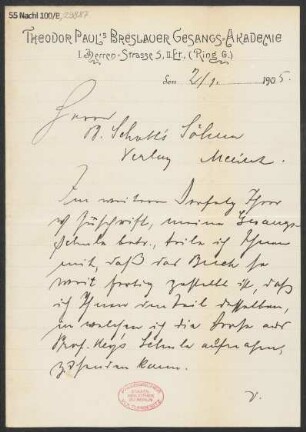 55 Nachl 100/B,
THEODOR PAUL'S BRESLAUER GESANGS-AKADEMIE
I. Herren-Strasse 5, II Et., (Ring 6.)
den 2/1. 1905.
Herrn
B. Schott's Söhne
Verlag Mainz.
Im weiteren Verfolg Ihrer
Zuschrift, meine Gesangs-
schule betr., teile ich Ihnen
mit, daß das Buch so
weit fertig gestellt ist, daß
ich Ihnen den Teil desselben,
in welchen ich die
Prof. Hey's Schule aufnahm,
zusenden kann.